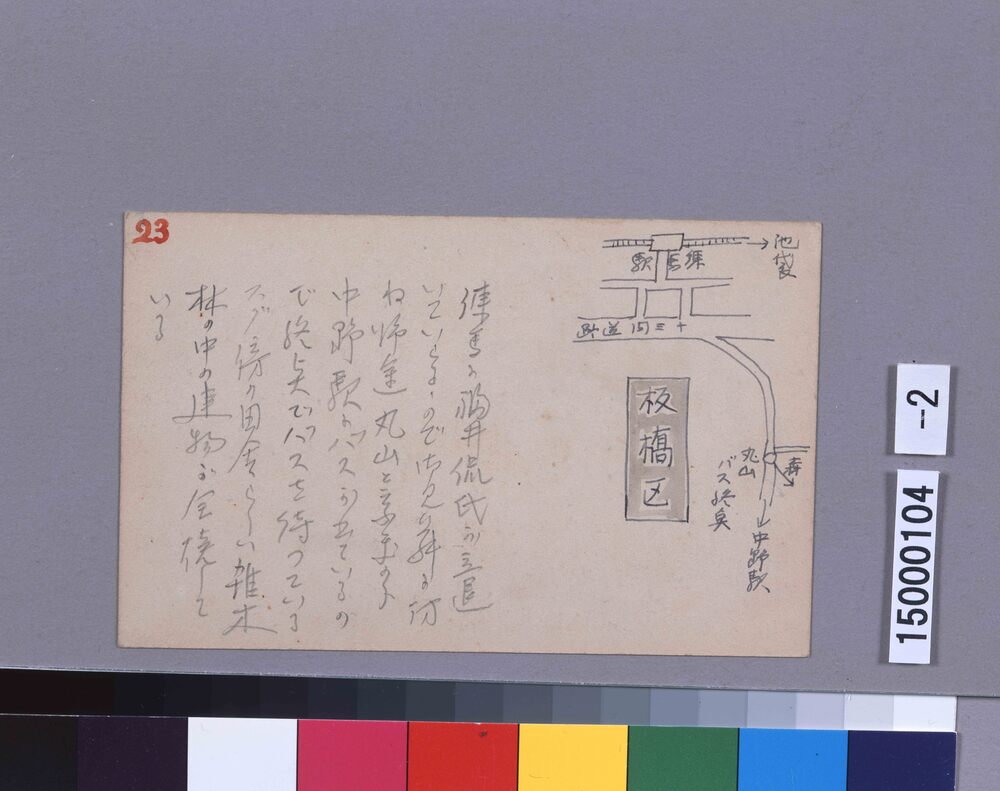 23
練馬に福井侃氏が立退
いているのでお見舞に訪
ね帰途丸山と云ふ
中野駅行バスが出ているの
で終点でバスを待つている
スグ傍の田舎らしい雑木
林の中の建物が全焼して
いる
池袋
練馬駅
十三間道路
板橋区
丸山
バス終点
中野駅
-2
15000104